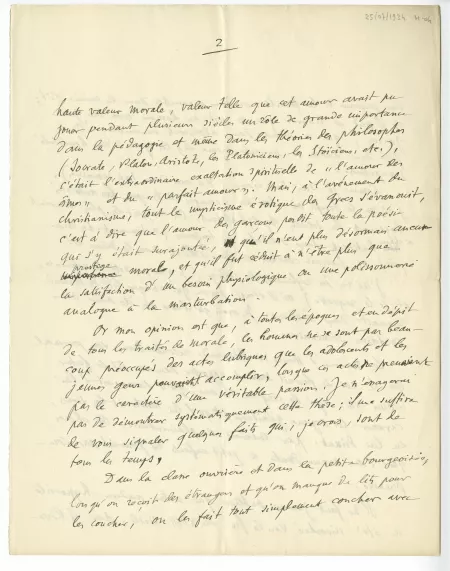 25/07/1924
2
haute valeur morale, valeur telle que cet amour avait pu
jouer pendant plusieurs siècles un rôle de grande importance
dans la pédagogie et même dans les théories des philosophes
(Socrate, Platon, Aristote, les Platoniciens, les Stoïciens, etc.),
c'était l'extraordinaire exaltation spirituelle de "l'amour des
âmes" et du "parfait amour". Mais, à l'avènement du
christianisme, tout le mysticisme érotique des Grecs s'évanouit,
c'est à dire que l'amour des garçons perdit toute la poésie
qui s'y était surajoutée, qu'il n'eut plus désormais aucun
prestige
moral, et qu'il fut réduit à n'être plus que
la satisfaction d'un besoin physiologique ou une polissonnerie
analogue à la masturbation.
Or mon opinion est que, à toutes les époques et en dépit
de tous les traités de morale, les hommes ne se sont pas beau-
coup préoccupés des actes lubriques que les adolescents et les
jeunes gens pouvaient accomplir, lorsque ces actes ne prenaient
pas le caractère d'une véritable passion. Je n'essayerai
pas de démontrer systématiquement cette thèse; il me suffira
de vous signaler quelques faits qui, je crois, sont de
tous les temps.
Dans la classe ouvrière et dans la petite bourgeoisie,
lorsqu'on reçoit des étrangers et qu'on manque de lits pour
les coucher, on les fait tout simplement coucher avec